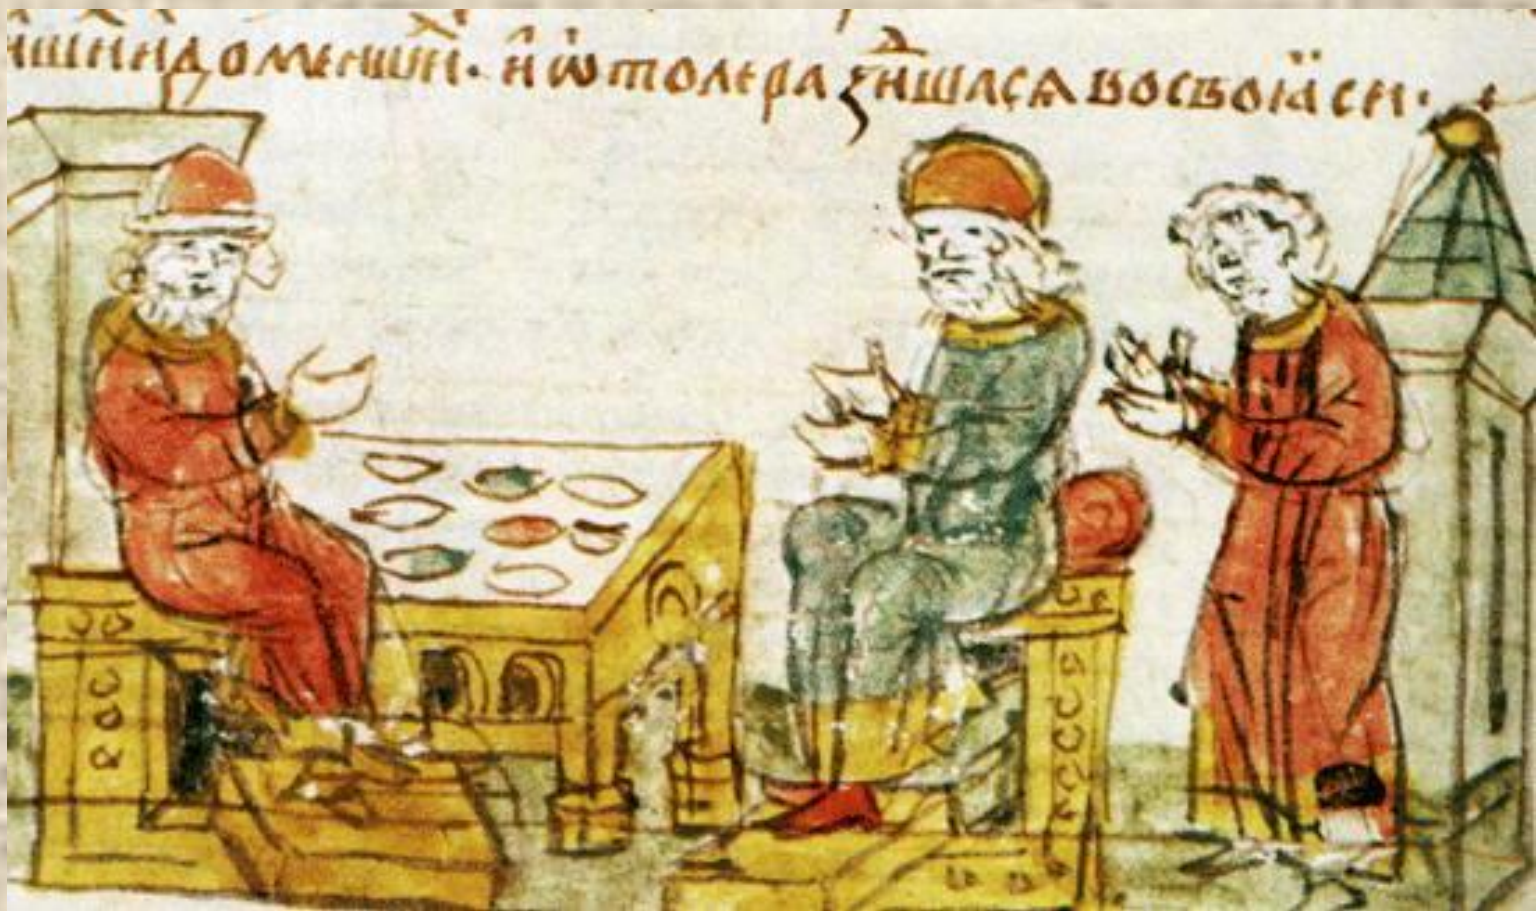 ишиндоменшїи. нѿтолеразидшасѧвосвоꙗси.